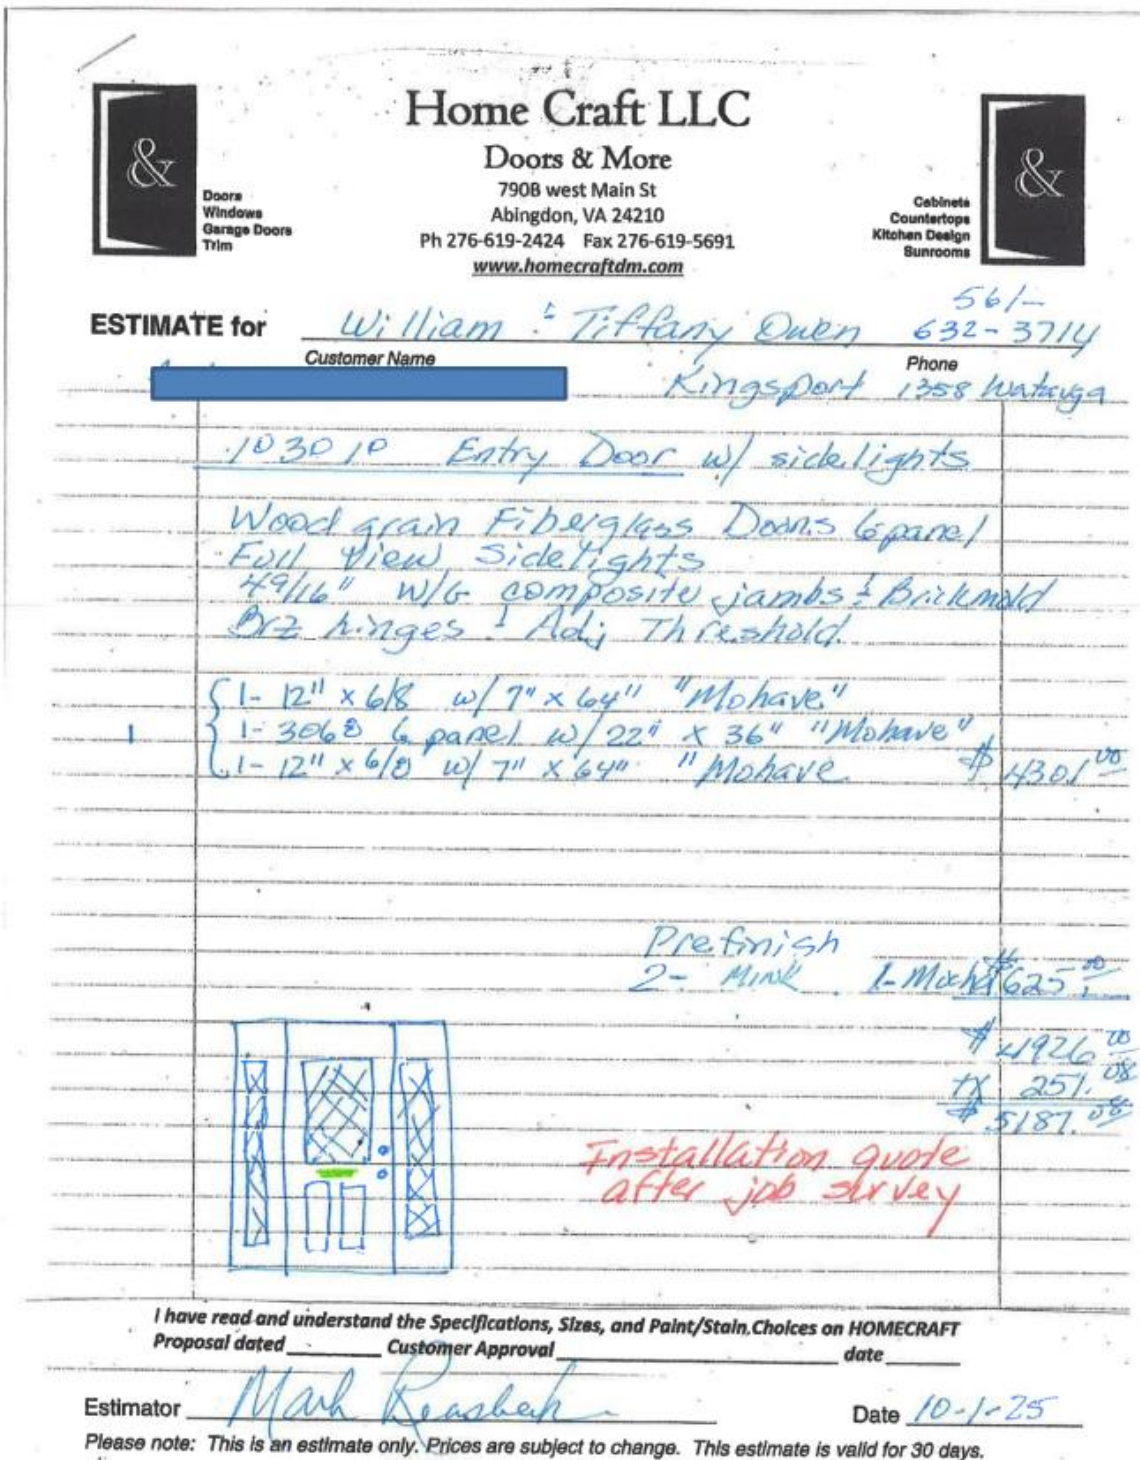 Home Craft LLC
Doors & More
790B west Main St
Abingdon, VA 24210
Ph 276-619-2424 Fax 276-619-5691
www.homecraftdm.com
&
Doors
Windows
Garage Doors
Trim
&
Cabinets
Countertops
Kitchen Design
Sunrooms
561-
ESTIMATE for William & Tiffany Owen 632-3714
Customer Name Phone
Kingsport 1358 Watauga
1030 10 Entry Door w/ sidelights
Wood grain Fiberglass Doors 6 panel
Full View Sidelights
4 9/16" W/G composite jambs & Brickmold
Brz hinges & Adj Threshold
1- 12" x 6/8 w/ 7" x 64" "Mohave"
1 1- 3068 6 panel w/ 22" x 36" "Mohave"
1- 12" x 6/8 w/ 7" x 64" "Mohave $ 4301.00
Prefinish
2- Mink 1- Mocha $625.00
$ 4926.00
tx 251.08
$ 5187.08
Installation quote
after job survey
I have read and understand the Specifications, Sizes, and Paint/Stain Choices on HOMECRAFT
Proposal dated Customer Approval date
Estimator Mark Date 10-1-25
Please note: This is an estimate only. Prices are subject to change. This estimate is valid for 30 days.